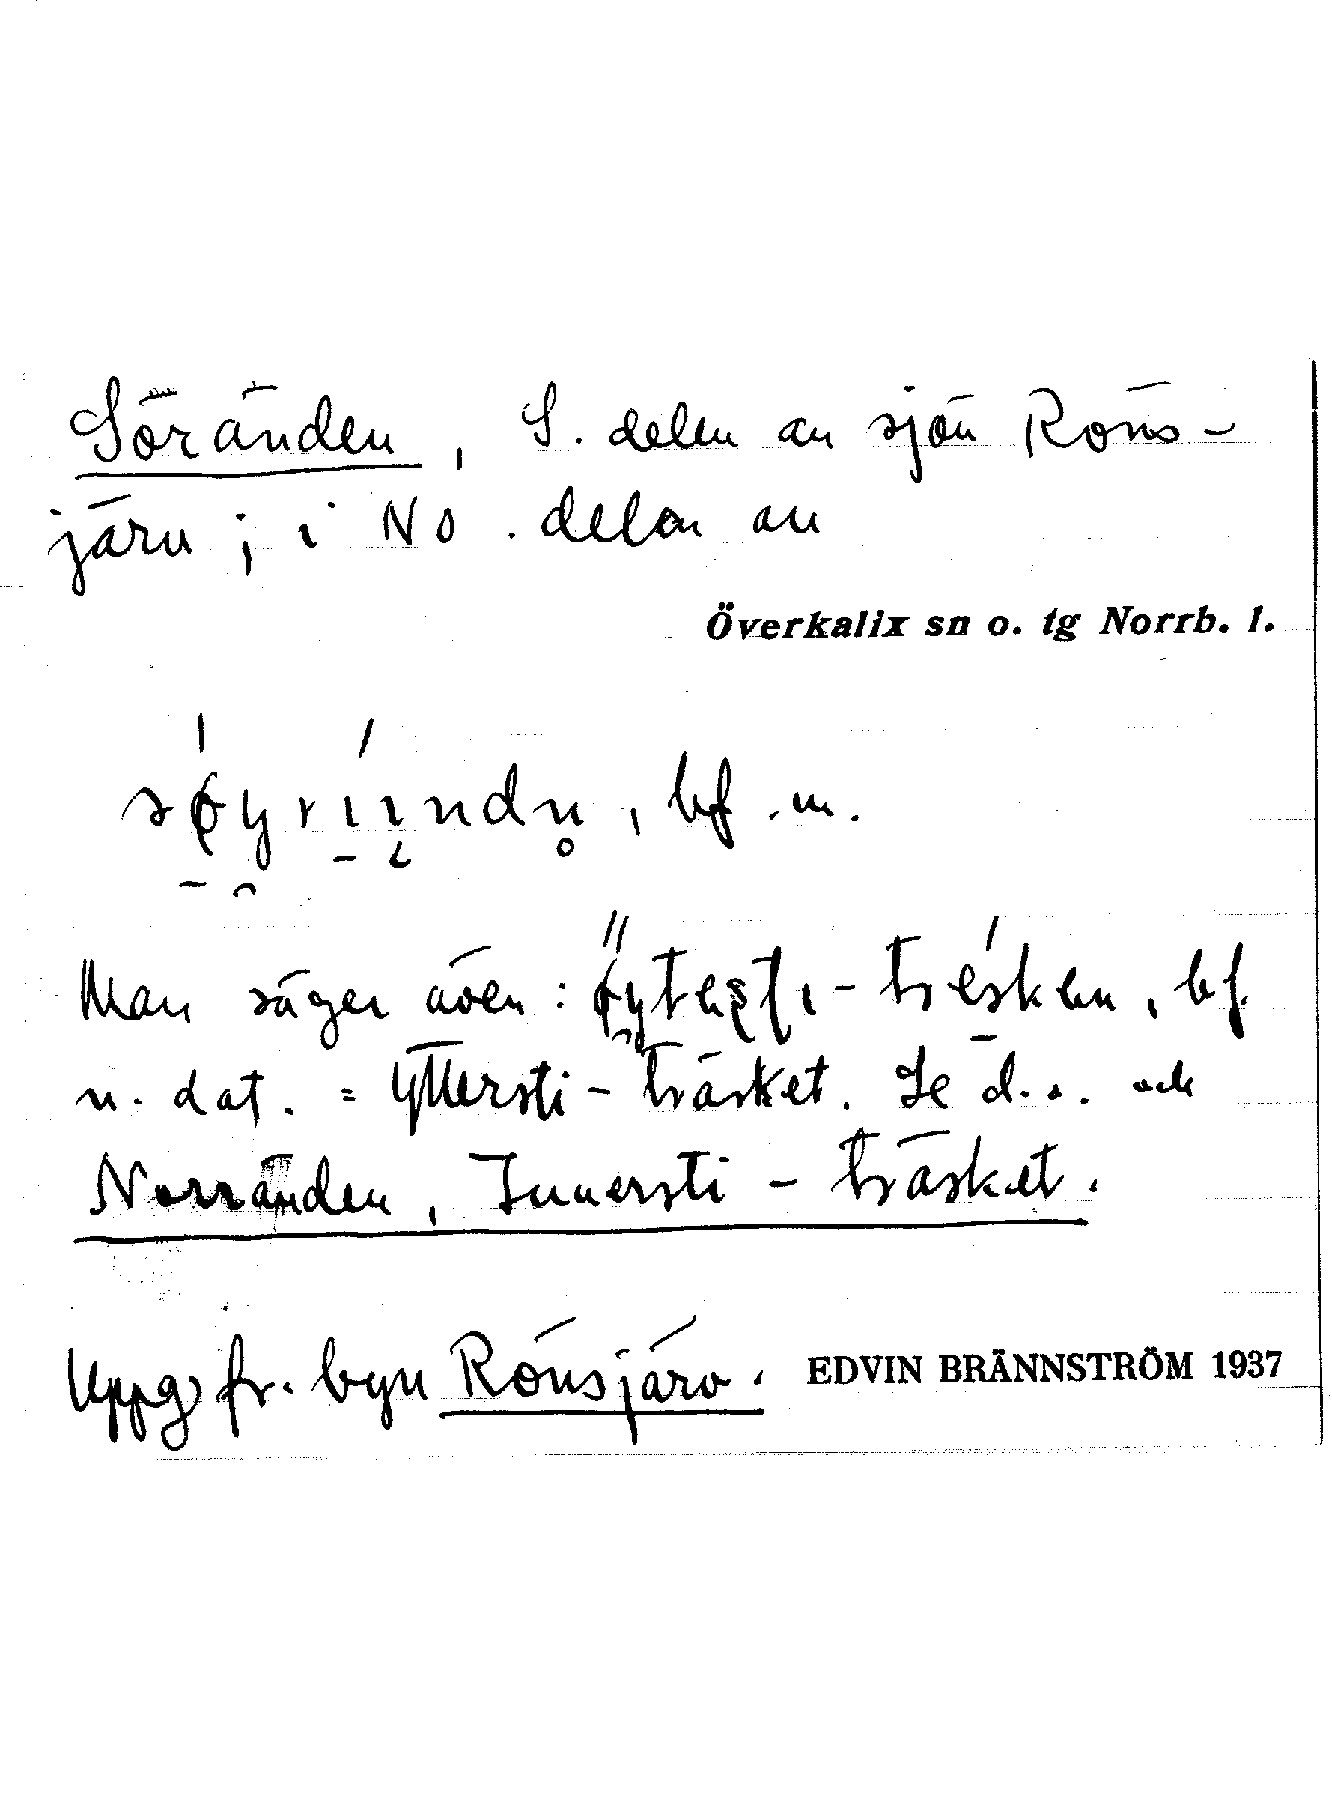 Söränden, S. delen av sjön Röns-
järv; i NO. delen av
Överkalix sn o. tg Norrb. l.
bf. m.
Man säger även: bf.
n. dat. = Yttersti-träsket. Se d.o. och
Norränden, Innersti-träsket.
Uppg. fr. byn Rönsjärv. EDVIN BRÄNNSTRÖM 1937